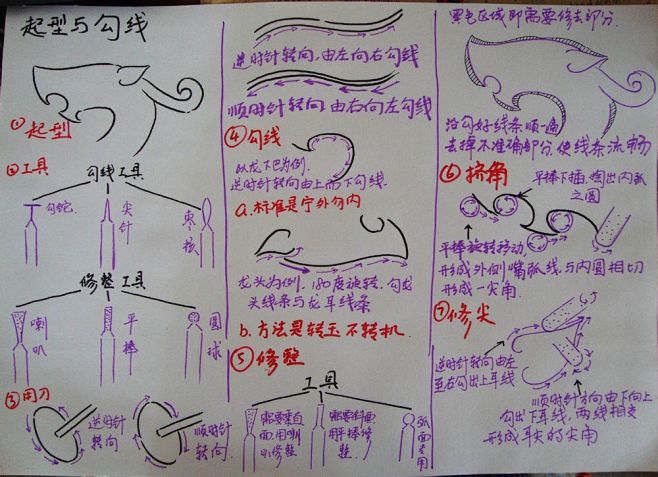 起型与勾线
①起型
②工具
勾线工具
勾砣
尖针
枣核
修整工具
喇叭
平棒
圆球
③用刀
逆时针
转向
顺时针
转向
逆时针转向,由左向右勾线
顺时针转向 由右向左勾线
④勾线
以龙下巴为例.
逆时针转向由上而下勾线.
a.标准是宁外勿内
龙头为例.180度旋转.勾龙
头线条与龙耳线条
b.方法是转玉不转机.
⑤修整
工具
需要素白
面用喇
叭修整
需要斜面
用棒修
整.
弧面专用
黑色区域即需要修去部分.
沿勾好线条顺一遍
去掉不准确部分使线条流畅
⑥挤角
平棒下插,掏出内弧
之圆
平棒旋转移动,
形成外侧嘴弧线,与内圆相切
形成一尖角.
⑦修尖
逆时针转向由左
至右勾出上耳线
顺时针方向由下向上
勾出下耳线,两线相交
形成耳尖的尖角